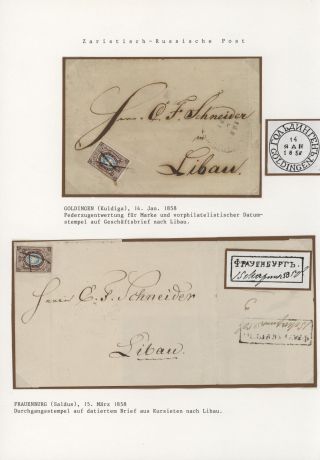 Zaristisch-Russische Post
Herrn C. F. Schneider
Libau.
ГОЛЬДИНГЕНЪ
14
ЯНВ
1858
GOLDINGEN
GOLDINGEN (Kuldiga), 14. Jan. 1858
Federzugentwertung für Marke und vorphilatelistischer Datum-
stempel auf Geschäftsbrief nach Libau.
ФРАУЕНБУРГЪ.
Herrn C. F. Schneider
Libau.
FRAUENBURG (Saldus), 15. März 1858
Durchgangsstempel auf datiertem Brief aus Kursieten nach Libau.